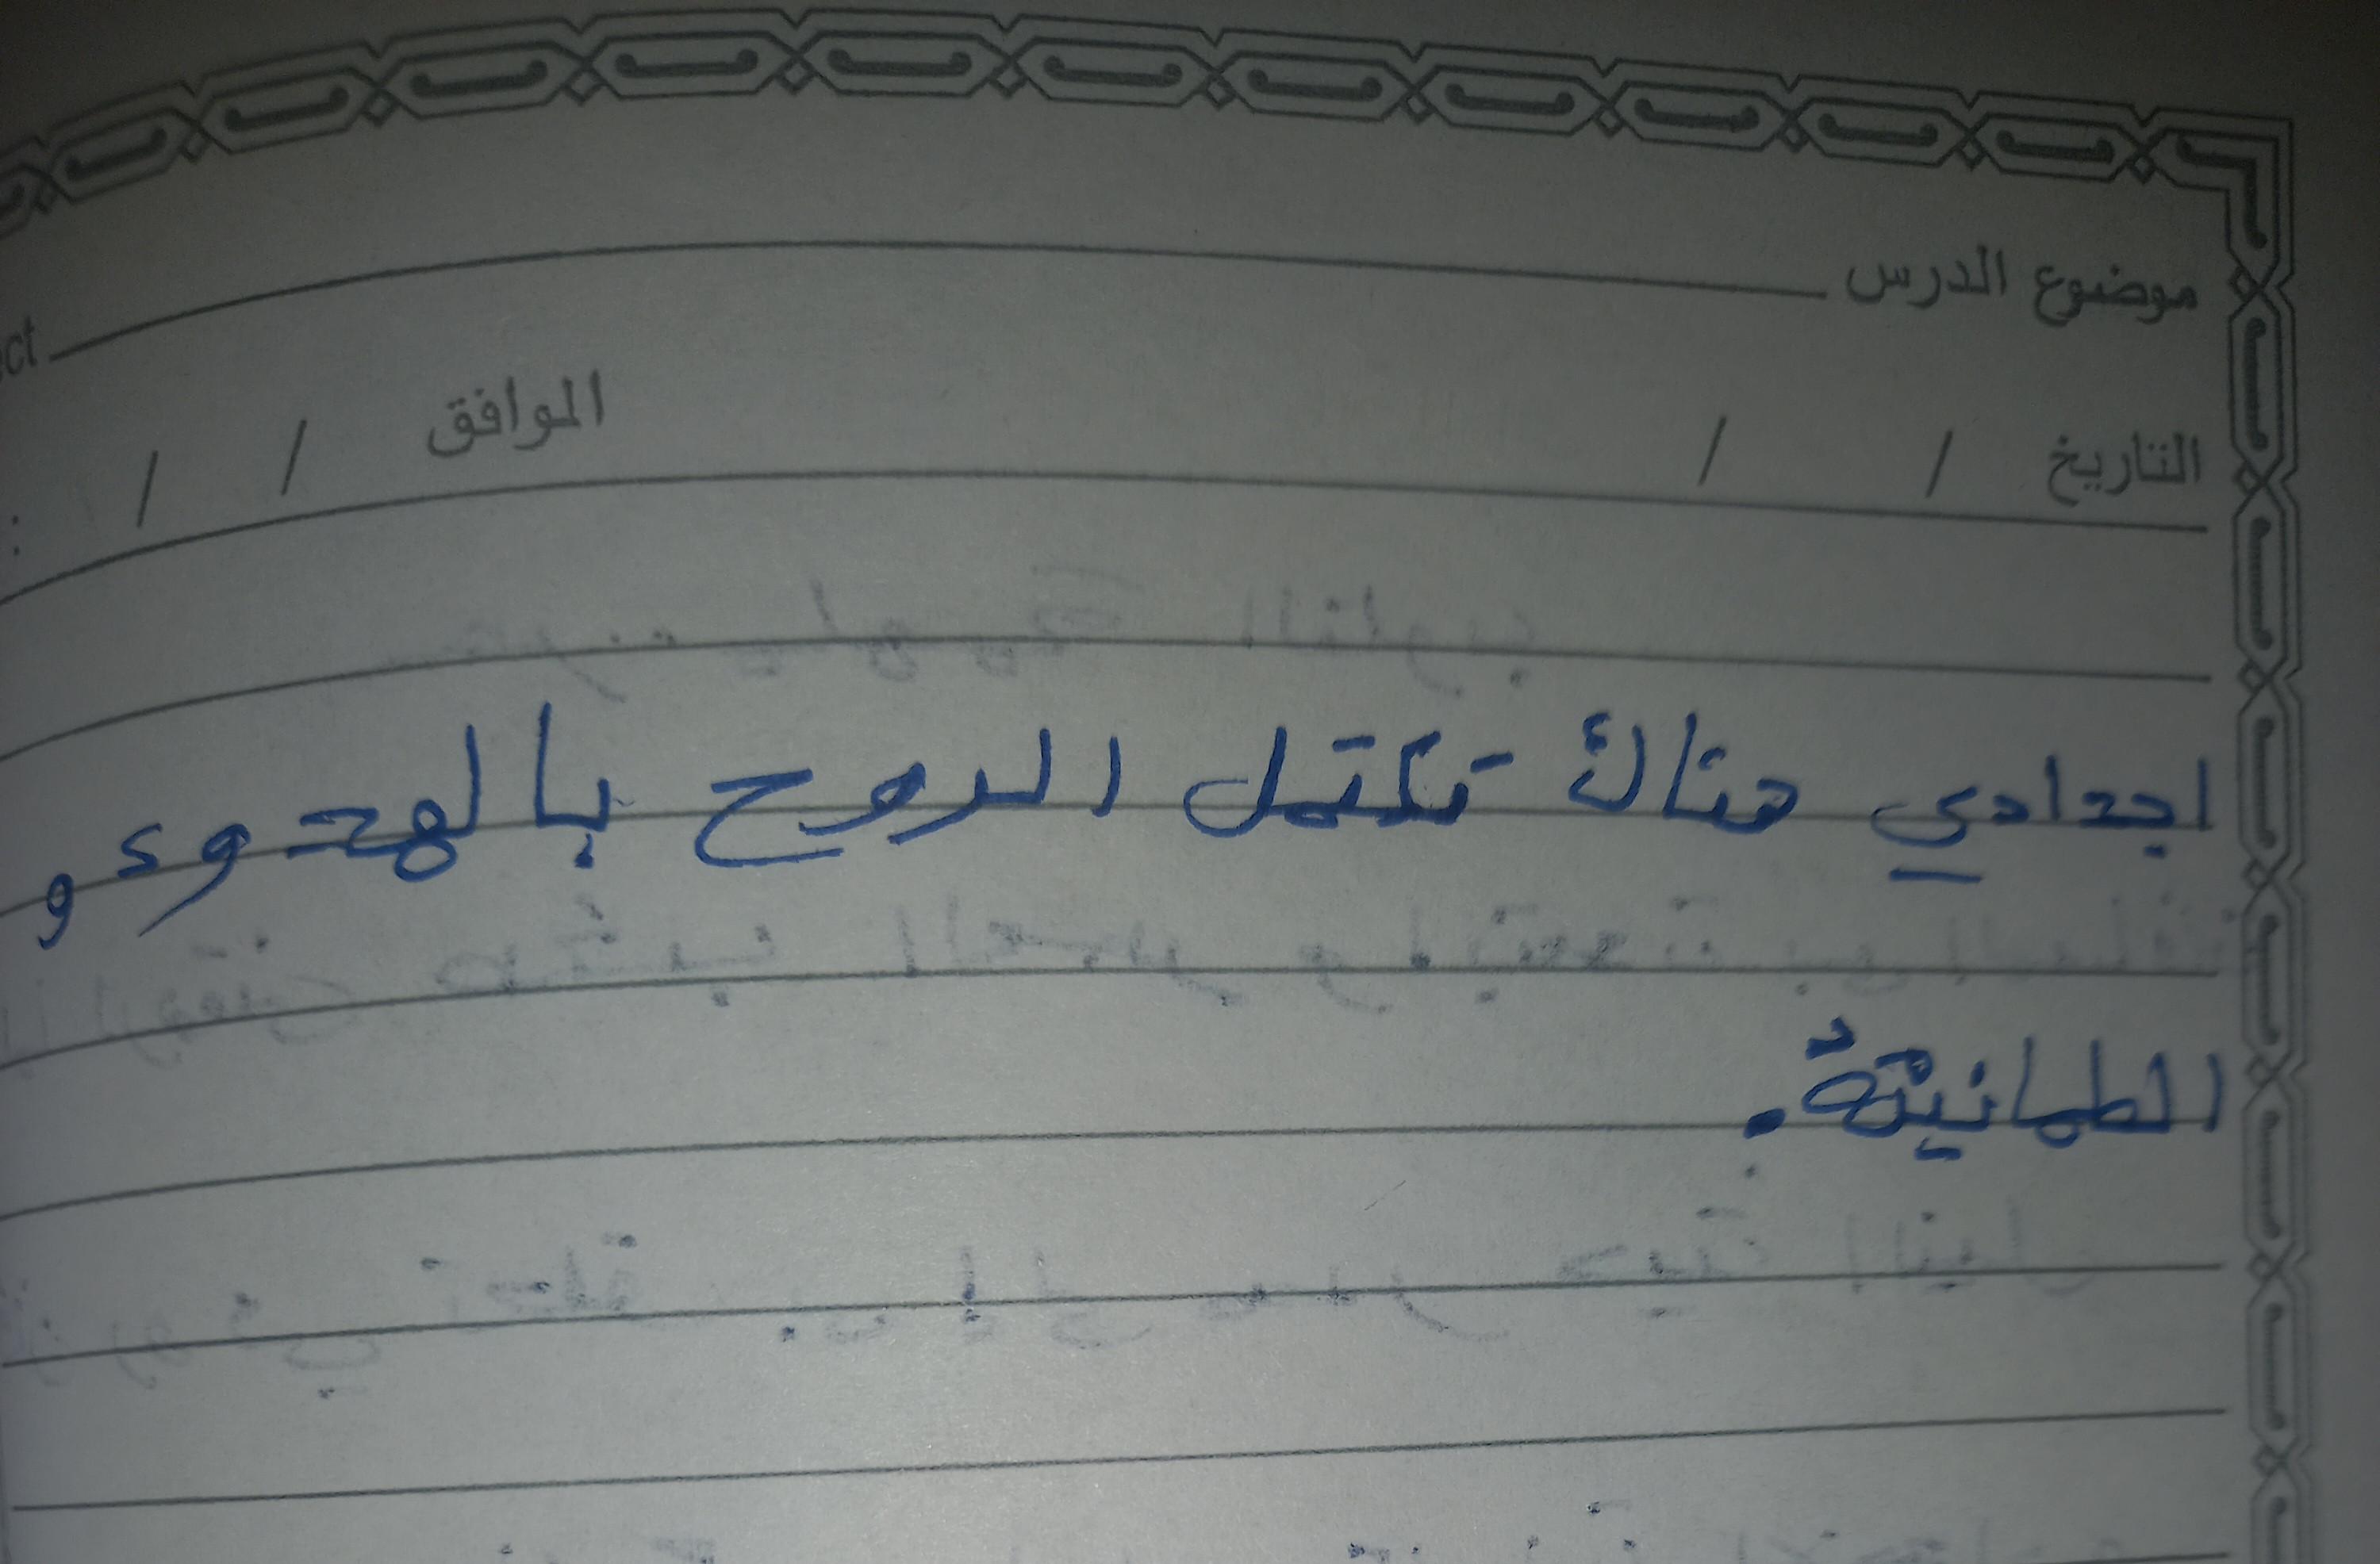 موضوع الدرس ct
التاريخ / / الموافق / / :
اجدادي هناك تكتمل الروح بالهدوء و
الطمانينةُ.